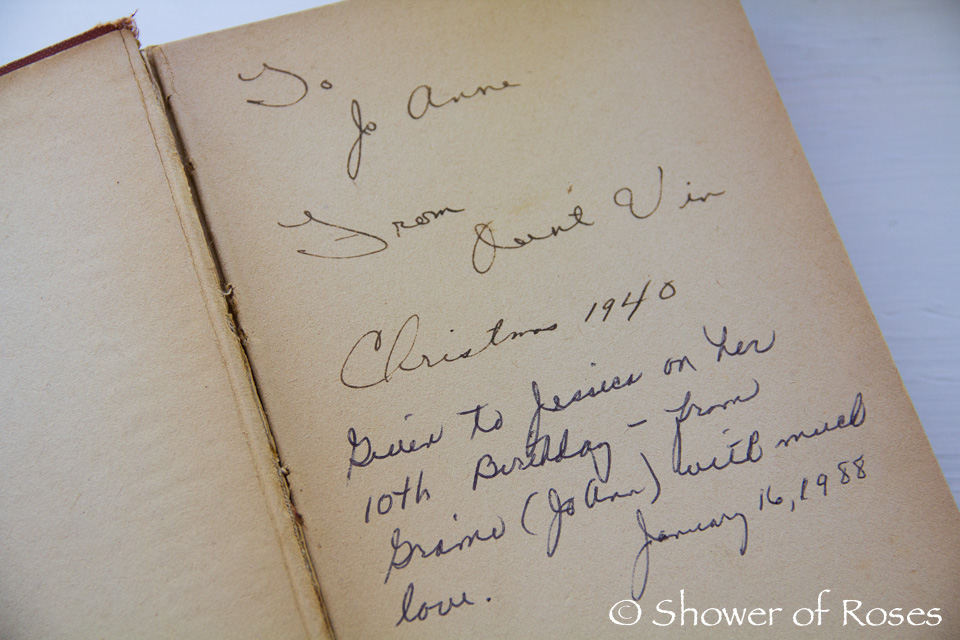 To
Jo Anne
From
Aunt Vin
Christmas 1940
Given to Jessica on her
10th Birthday - from
Grame (JoAnn) with much
love. January 16, 1988
© Shower of Roses